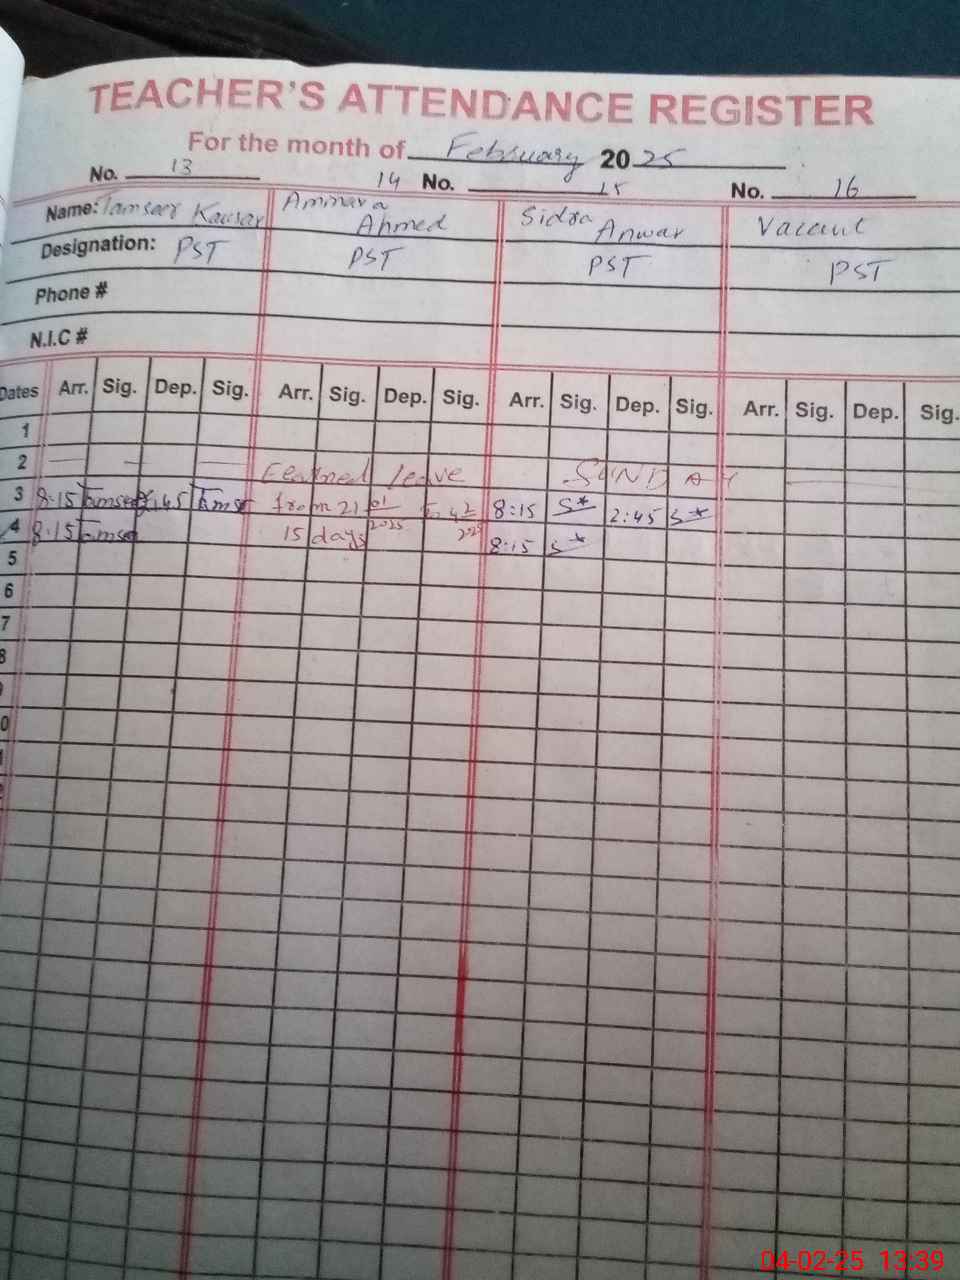 TEACHER'S ATTENDANCE REGISTER
For the month of February 2025
No. 13 14 No. 15 No. 16
Name: Tamseer Kausar Ammara Ahmed Sidra Anwar Vacant
Designation: PST PST PST PST
Phone #
N.I.C #
Dates Arr. Sig. Dep. Sig. Arr. Sig. Dep. Sig. Arr. Sig. Dep. Sig. Arr. Sig. Dep. Sig.
1
2 Earned leave SUNDAY
3 8:15 Tamseer 2:45 Tamse from 21 01 2025 to 4 2 8:15 S* 2:45 S*
4 8:15 Tamseer 15 days 8:15 S*
5
6
7
8
04-02-25 13:39